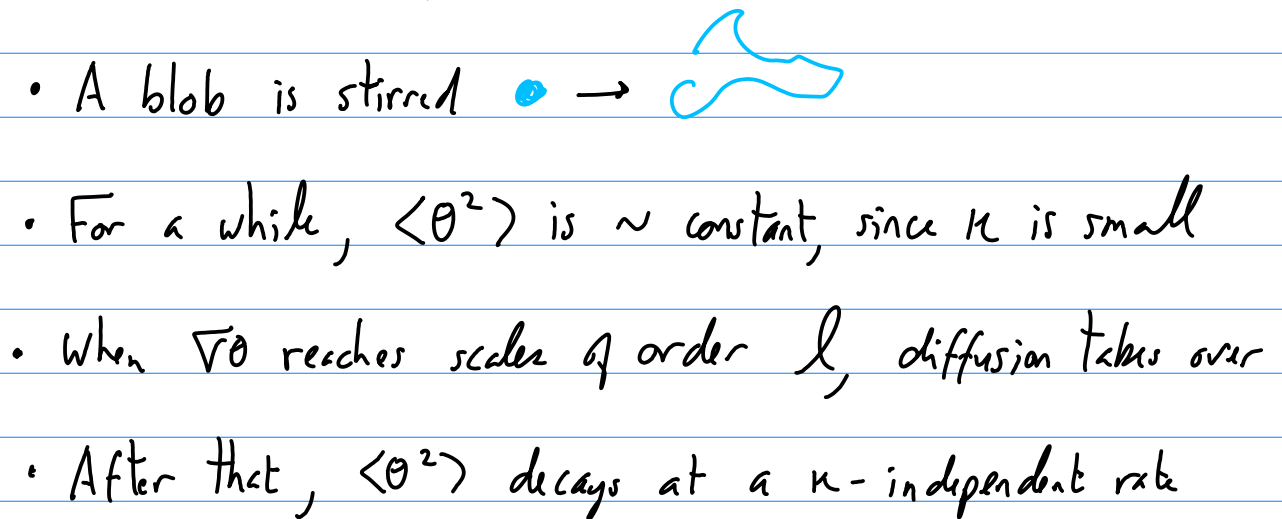 • A blob is stirred →
• For a while, <θ²> is ~ constant, since κ is small
• When ∇θ reaches scales of order ℓ, diffusion takes over
• After that, <θ²> decays at a κ-independent rate